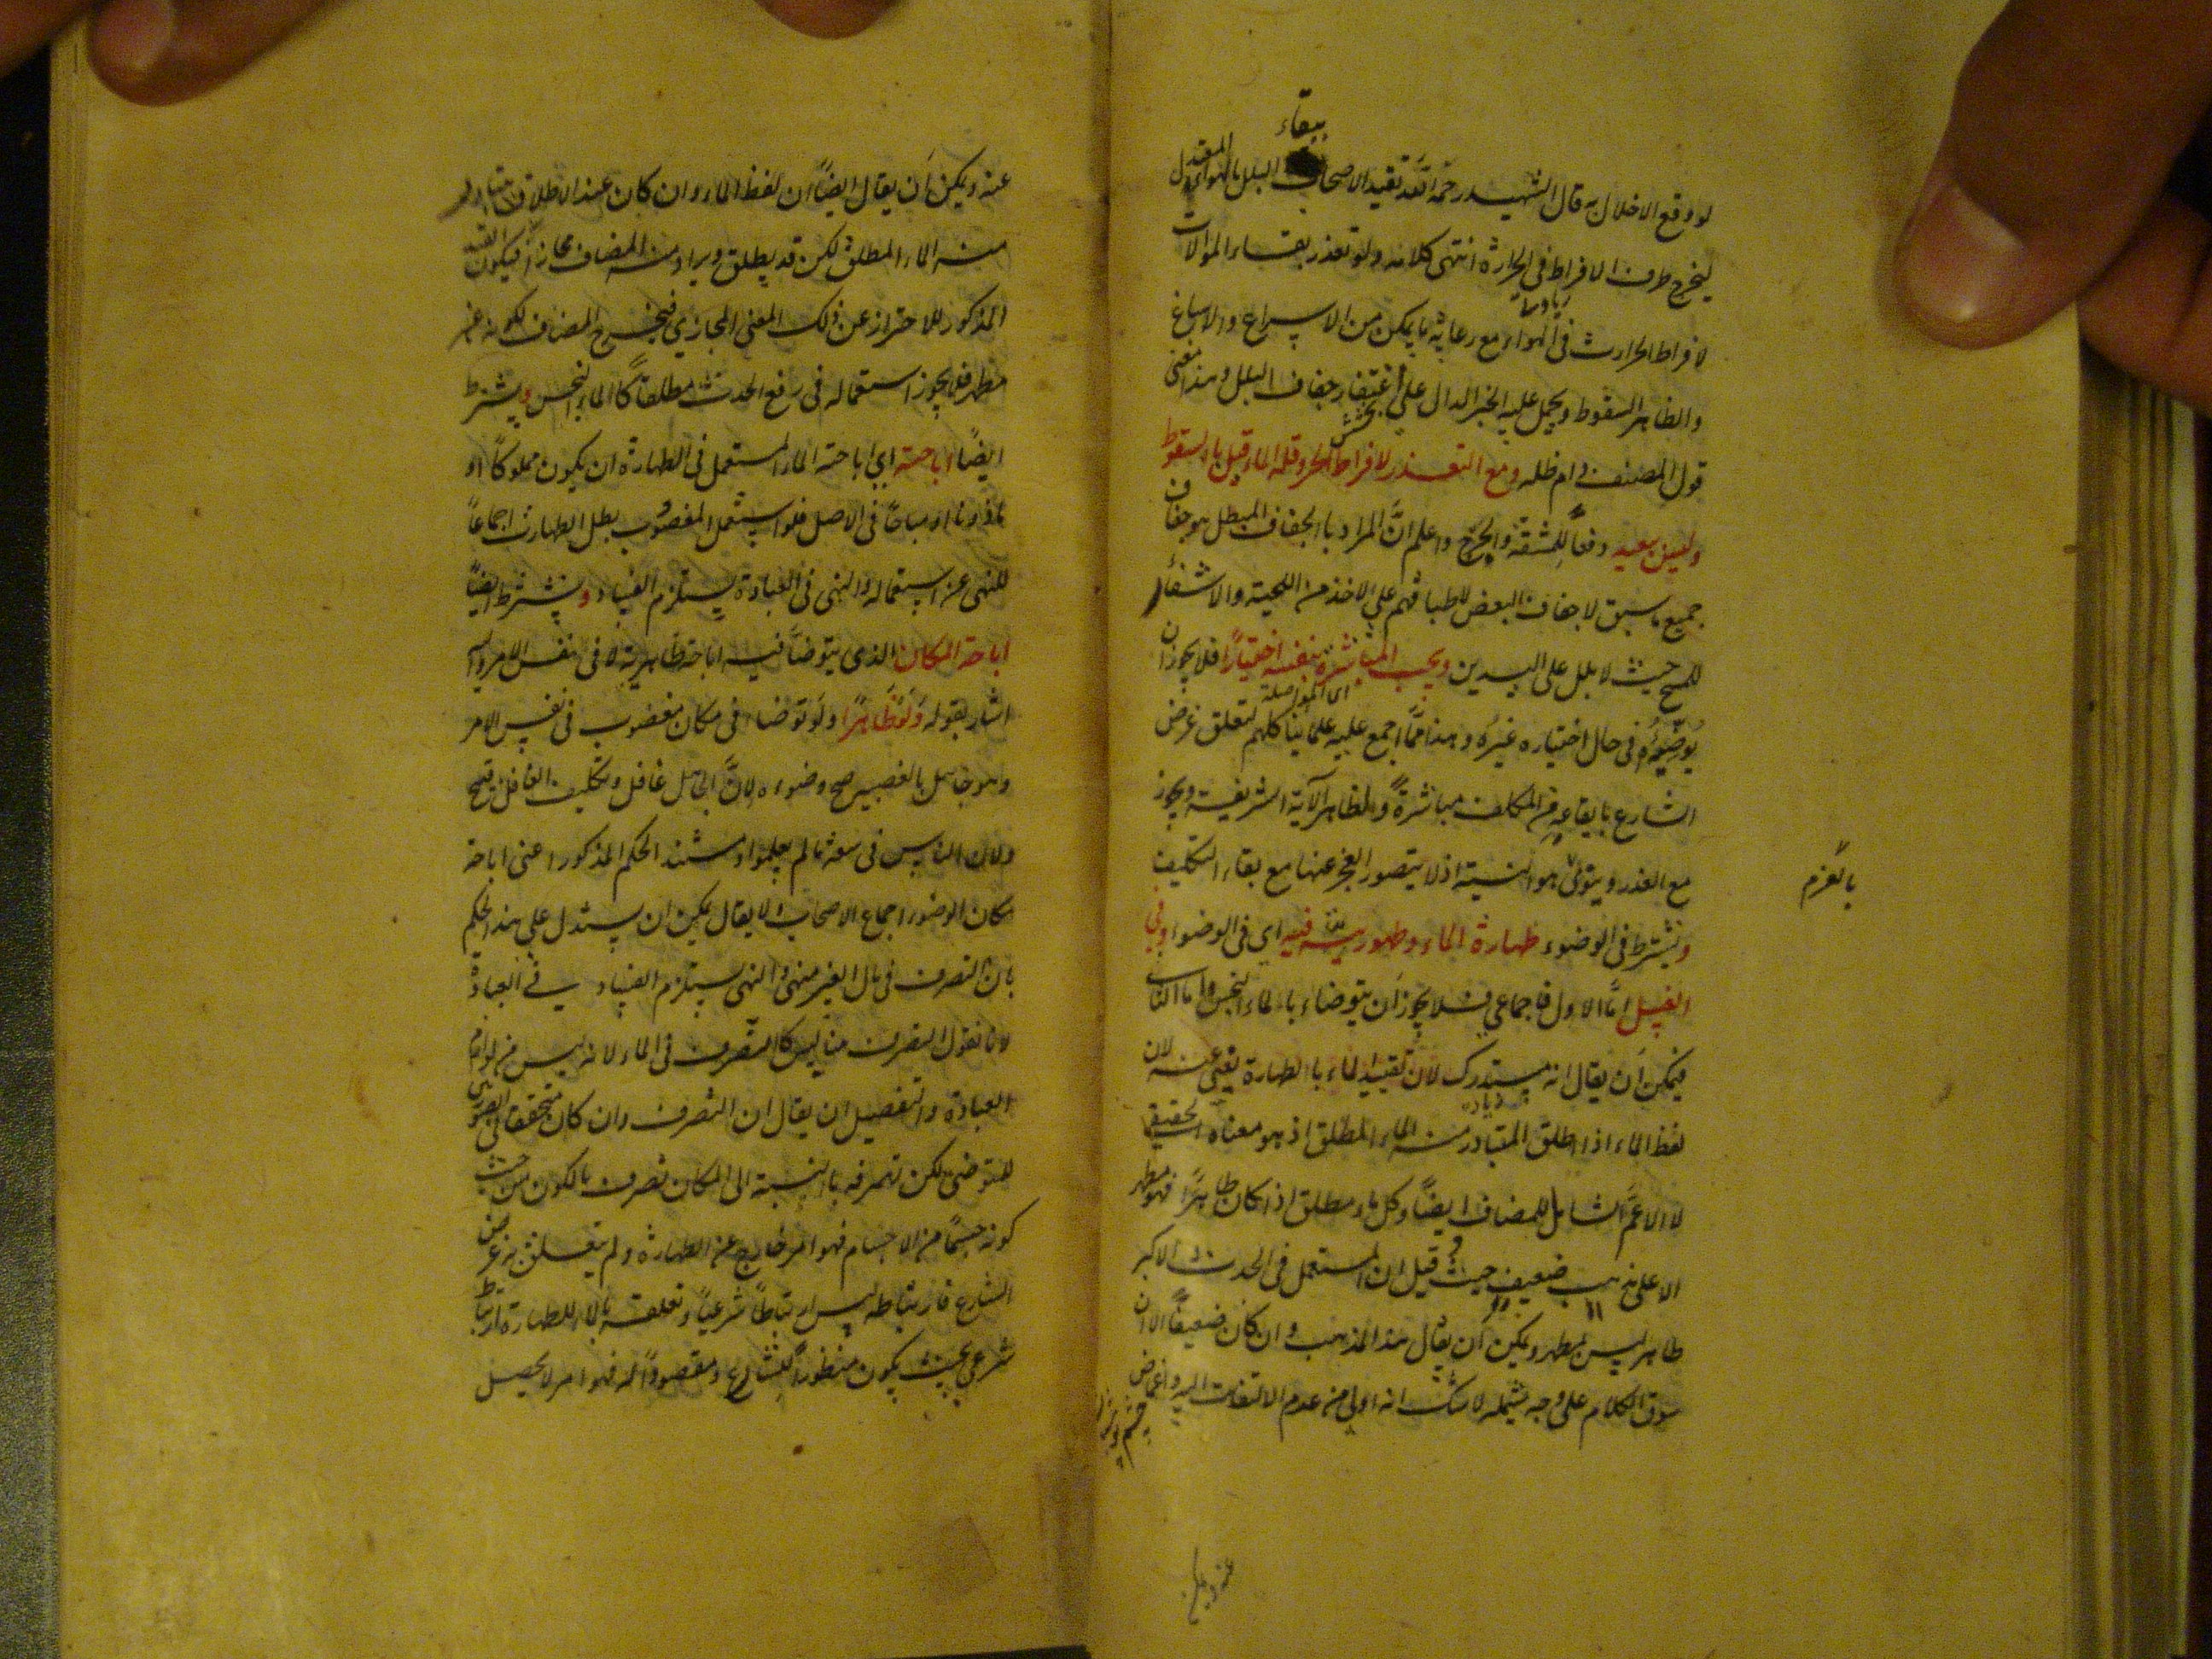 ببقاء
لو وقع الاخلال به قال الشهيد رحمة الله تقييد الاصحاب البلل بالهواء المعتدل
ليخرج طرف الافراط فى الحرارة انتهى كلامه ولو تعذر بقاء الموالات
لافراط الحرارت فى الهواء مع رعاية ما يمكن من الاسراع والاسباغ
والظاهر السقوط ويحمل عليه الخبر الدال على اغتفار جفاف البلل وهذا معنى
قول المصنف دام ظله ومع التعذر لافراط الحر وقلة الماء قيل بالسقوط
وليس ببعيد دفعاً للمشقة والحرج واعلم انَّ المراد با الجفاف المبطل هو جفاف
جميع ما سبق لا جفاف البعض لاطباقهم على الاخذ من اللحية والاشفار
للمسح حيث لا بلل على اليدين ويجب المباشرة بنفسه اختيارًا فلا يجوز ان
يُوضّيهُ فى حال اختياره غيرُه وهذا ممّا اجمع عليه علماينا كلهم لتعلق غرض
الشارع بايقاعه من المكلف مباشرةً ولظاهر الآية الشريفة ويجوز
مع العذر ويتولى هو النية اذ لا يتصور العجز عنها مع بقاء التكليف
بالعزم
ويشترط فى الوضوء طهارة الماء وطهوريته فيه اى فى الوضوء وفى
الغسل امّا الاول فاجماعي فلا يجوز أن يتوضاء بالماء النجس واما الثانى
فيمكن أن يقال انه مستدرك لان تقييد الماء با الطهارة يغنى عنه لان
لفظ الماء اذا اطلق المتبادر منه الماء المطلق اذ هو معناه الحقيقى
لا الاعمّ الشامل للمضاف ايضًا وكل ماء مطلق اذا كان طاهرًا فهو مطهر
الا على مذهب ضعيف حيث قيل ان المستعمل فى الحدث الاكبر
طاهر ليس بمطهر ويمكن أن يقال هذا المذهب وان كان ضعيفًا الا ان
سوق الكلام على وجه يشمله لا شك انه اولى من عدم الالتفات اليه واغماض
عنه ويمكن أن يقال ايضًا ان لفظ الماء وان كان عند الاطلاق يتبادر
منه الماء المطلق لكن قد يطلق ويراد منه المضاف مجازًا فيكون القيد
المذكور للاحتراز عن ذلك المعنى المجازي فيخرج المضاف لكونه غير
مطهر فلا يجوز استعماله فى رفع الحدث مطلقًا كا الماء النجس ويشترط
ايضًا اباحته اي اباحة الماء المستعمل فى الطهارة ان يكون مملوكًا او
مأذونا او مباحًا فى الاصل فلو استعمل المغصوب بطل الطهارت اجماعاً
للنهى عن استعماله والنهى فى العبادة يستلزم الفساد ويشترط ايضًا
اباحة المكان الذى يتوضّأ فيه اباحة ظاهرية لا فى نفس الامر واليه
اشار بقوله ولو ظاهرًا ولو توضاء فى مكان مغصوب فى نفس الامر
وهو جاهل بالغصب صح وضوءه لانّ الجاهل غافل وتكليف الغافل قبيح
ولان الناس فى سعة ما لم يعلموا ومستند الحكم المذكور اعنى اباحة
مكان الوضوء اجماع الاصحاب ولا يقال يمكن ان يستدل على هذا الحكم
بان التصرف فى مال الغير منهى والنهى يستلزم الفساد فى العبادة
لانا نقول التصرف هنا ليس كا التصرف فى الماء لانه ليس من لوازم
العبادة والتفصيل ان يقال ان التصرف وان كان متحققا فى الصورتين
للمتوضئ لكن تصرفه با النسبة الى المكان تصرف بالكون من حيث
كونه جسمًا من الاجسام فهو امر خارج عن الطهارة ولم يتعلق به غرض
الشارع فارتباطه ليس ارتباطًا شرعيًا وتعلقه بالماء للطهارة ارتباط
شرعي بحيث يكون منظورًا للشارع ومقصودًا له فهو امر لا يحصل